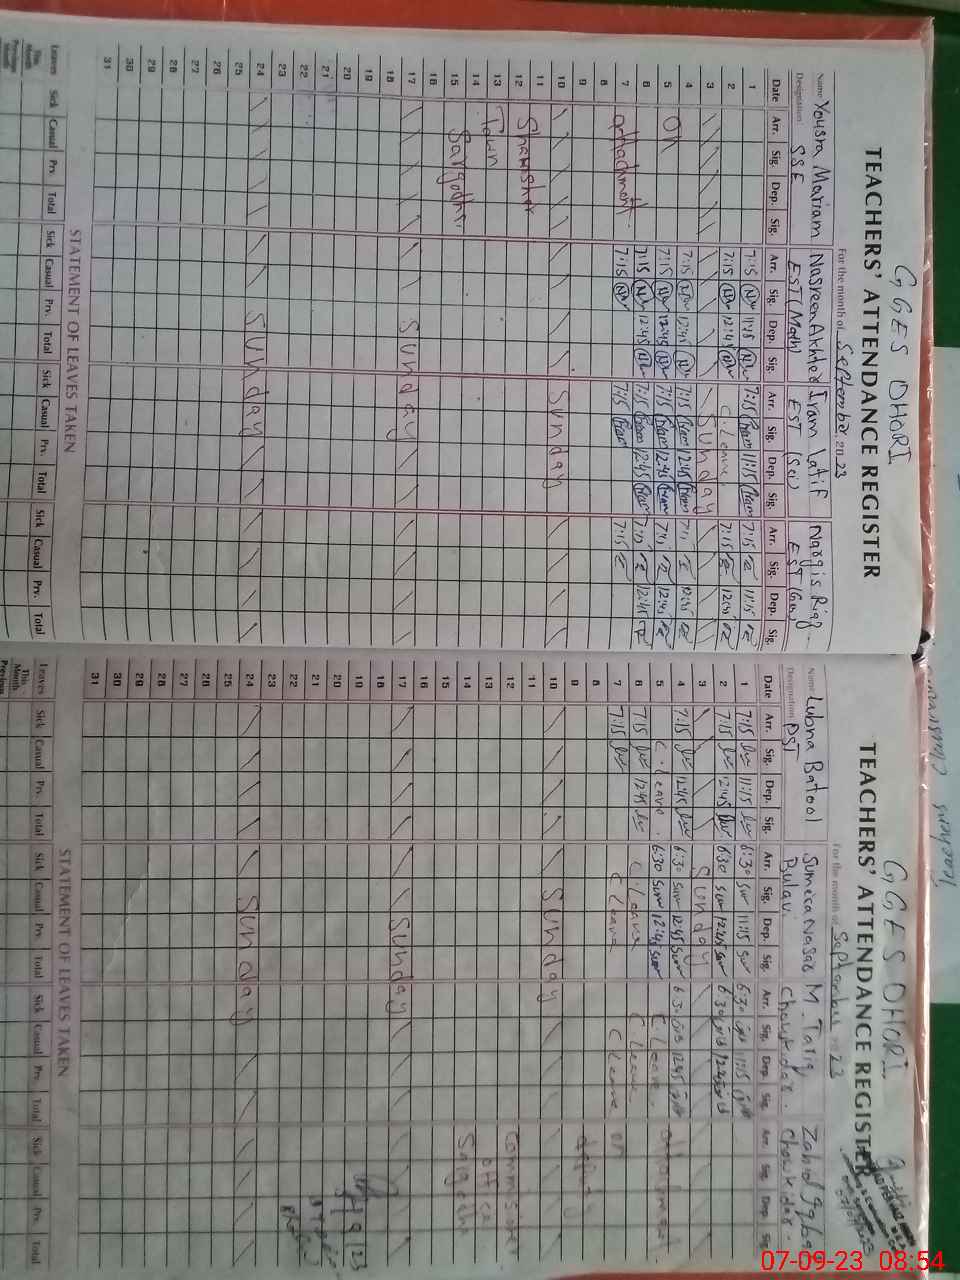 GGES DHORI
TEACHERS' ATTENDANCE REGISTER
For the month of September 2023
Name Yousra Mariam Nasreen Akhter Iram Latif Nargis Riaz
Designation SSE EST (Math) EST (Sci) EST (Gen)
Date Arr. Sig. Dep. Sig. Arr. Sig. Dep. Sig. Arr. Sig. Dep. Sig. Arr. Sig. Dep. Sig.
1 7:15 11:15 7:15 11:15 7:15 11:15
2 7:15 12:45 C. Leave 7:15 12:45
3 Sunday
4 7:15 12:45 7:15 12:45 7:15 12:45
5 On 7:15 12:45 7:15 12:45 7:15 12:45
6 7:15 12:45 7:15 12:45 7:15 12:45
7 attachment 7:15 7:15 7:15
8
9
10 Sunday
11
12 Shamsher
13 Town
14
15 Sargodha.
16
17 Sunday
18
19
20
21
22
23
24 Sunday
25
26
27
28
29
30
31
STATEMENT OF LEAVES TAKEN
Leaves Sick Casual Prv. Total Sick Casual Prv. Total Sick Casual Prv. Total Sick Casual Prv. Total
This Month
Previous Month
GGES DHORI
TEACHERS' ATTENDANCE REGISTER
For the month of September 2023
Name Lubna Batool Sumera Nasar M. Tariq Zahid Iqbal
Designation PST Bulavi Chowkidar. Chowkidar.
Date Arr. Sig. Dep. Sig. Arr. Sig. Dep. Sig. Arr. Sig. Dep. Sig. Arr. Sig. Dep. Sig.
1 7:15 11:15 6:30 11:15 6:30 11:15
2 7:15 12:45 6:30 12:45 6:30 12:45
3 Sunday
4 7:15 12:45 6:30 12:45 6:30 12:45
5 C. Leave. 6:30 12:45 C. Leave.
6 7:15 12:45 C. Leave C Leave
7 7:15 C Leave C Leave on
8
9 deputy
10 Sunday
11
12 Commissioner
13 office
14 Sargodha
15
16
17 Sunday
18
19
20
21
22
23
24 Sunday
25
26
27
28
29
30
31
STATEMENT OF LEAVES TAKEN
Leaves Sick Casual Prv. Total Sick Casual Prv. Total Sick Casual Prv. Total Sick Casual Prv. Total
This Month
Previous
07-09-23 08:54